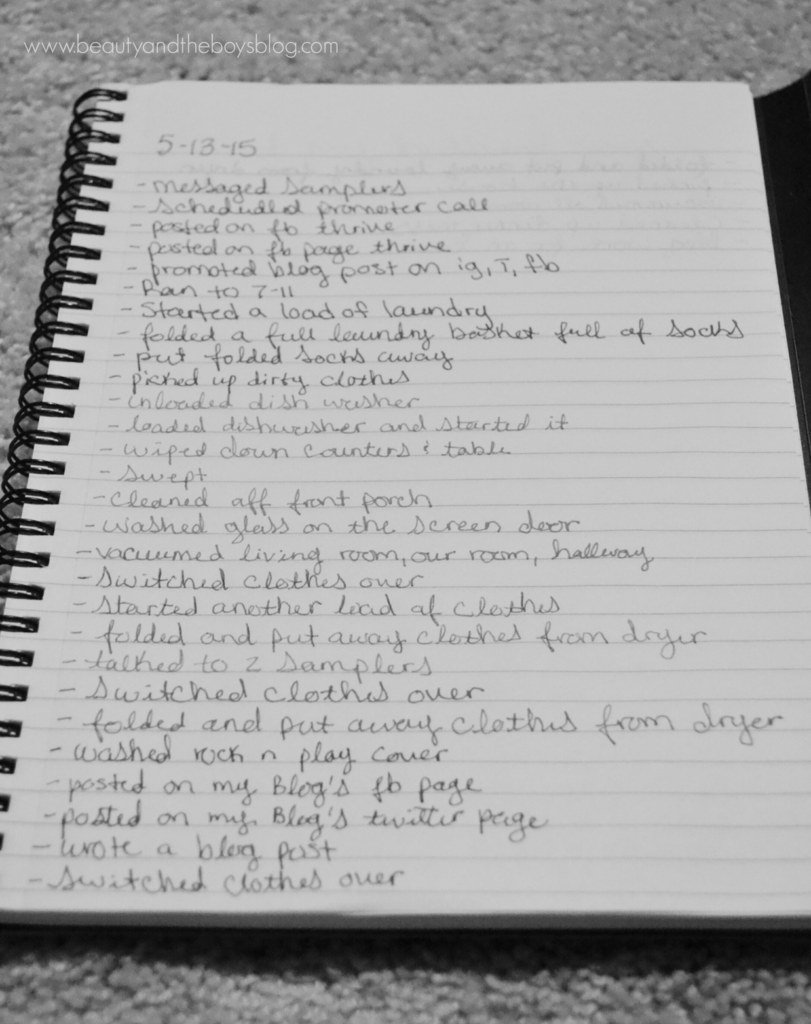 www.beautyandtheboysblog.com
5-13-15
- messaged samplers
- scheduled promoter call
- posted on fb thrive
- posted on fb page thrive
- promoted blog post on ig, T, fb
- Ran to 7-11
- Started a load of laundry
- folded a full laundry basket full of socks
- put folded socks away
- picked up dirty clothes
- unloaded dish washer
- loaded dishwasher and started it
- wiped down counters & table
- swept
- cleaned off front porch
- washed glass on the screen door
- vacuumed living room, our room, hallway
- switched clothes over
- started another load of clothes
- folded and put away clothes from dryer
- talked to 2 samplers
- switched clothes over
- folded and put away clothes from dryer
- washed rock n play cover
- posted on my Blog's fb page
- posted on my Blog's twitter page
- wrote a blog post
- switched clothes over